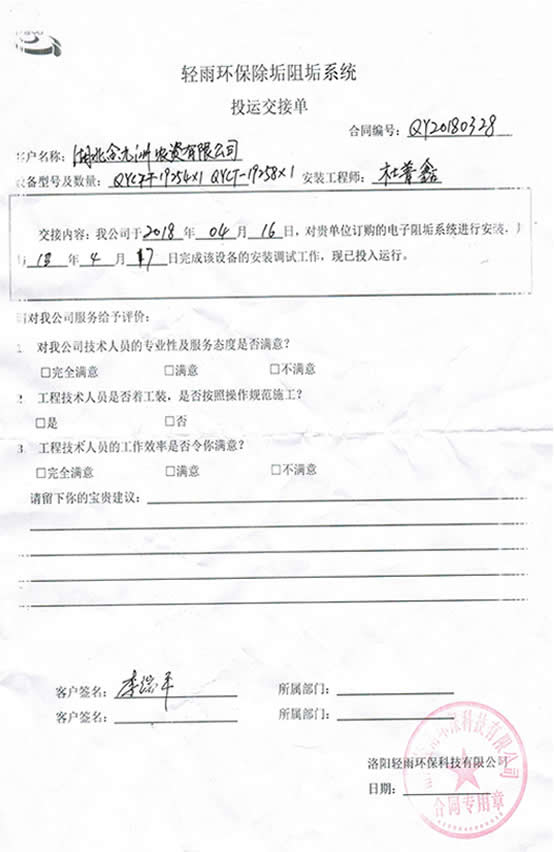 轻雨环保除垢阻垢系统
投运交接单
合同编号：QY20180328
客户名称：湖北合九洲农资有限公司
设备型号及数量：QYCT-19254×1 QYCT-19258×1 安装工程师：杜普鑫
交接内容：我公司于2018年04月16日，对贵单位订购的电子阻垢系统进行安装，
18年4月17日完成该设备的安装调试工作，现已投入运行。
对我公司服务给予评价：
1 对我公司技术人员的专业性及服务态度是否满意？
□完全满意 □满意 □不满意
2 工程技术人员是否着工装，是否按照操作规范施工？
□是 □否
3 工程技术人员的工作效率是否令你满意？
□完全满意 □满意 □不满意
请留下你的宝贵建议：
客户签名：李瑞平 所属部门：
客户签名： 所属部门：
洛阳轻雨环保科技有限公司
日期：
合同专用章